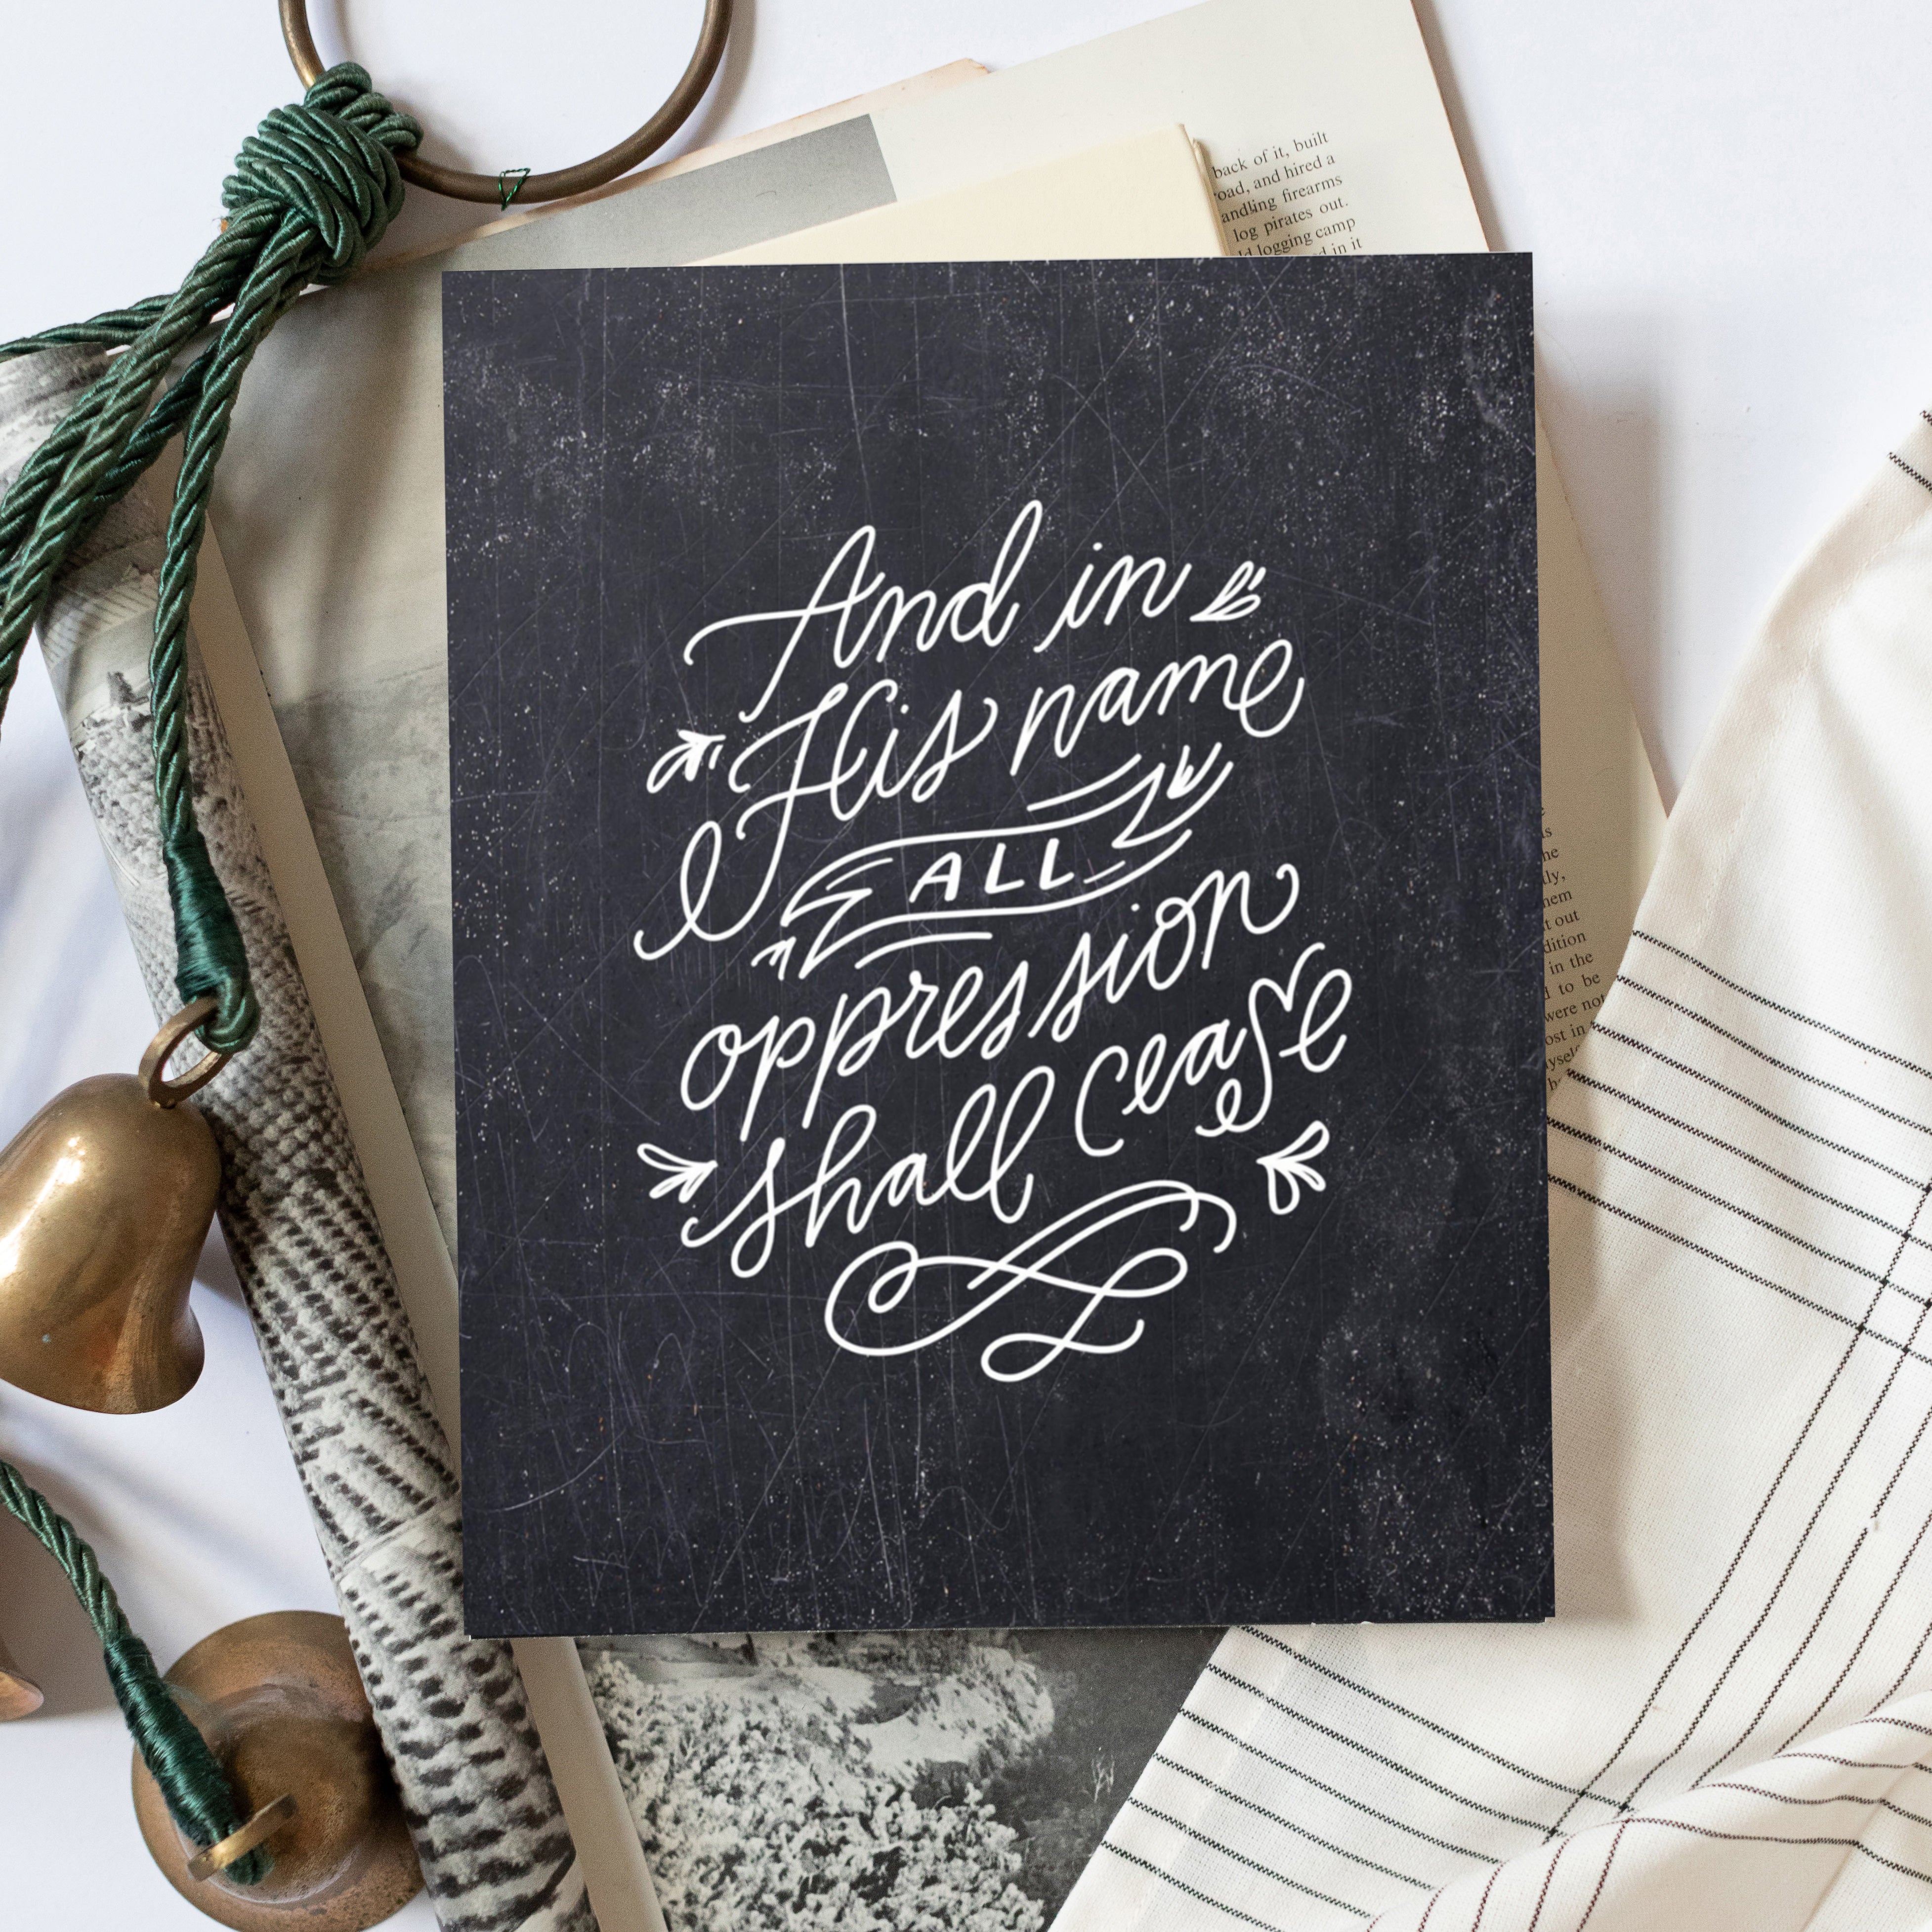 back of it, built
road, and hired a
andling firearms
log pirates out.
ld logging camp
d in it
And in
His name
ALL
oppression
shall cease
e
is
he
ly,
hem
t out
dition
in the
d to be
were not
ost in
yself
b